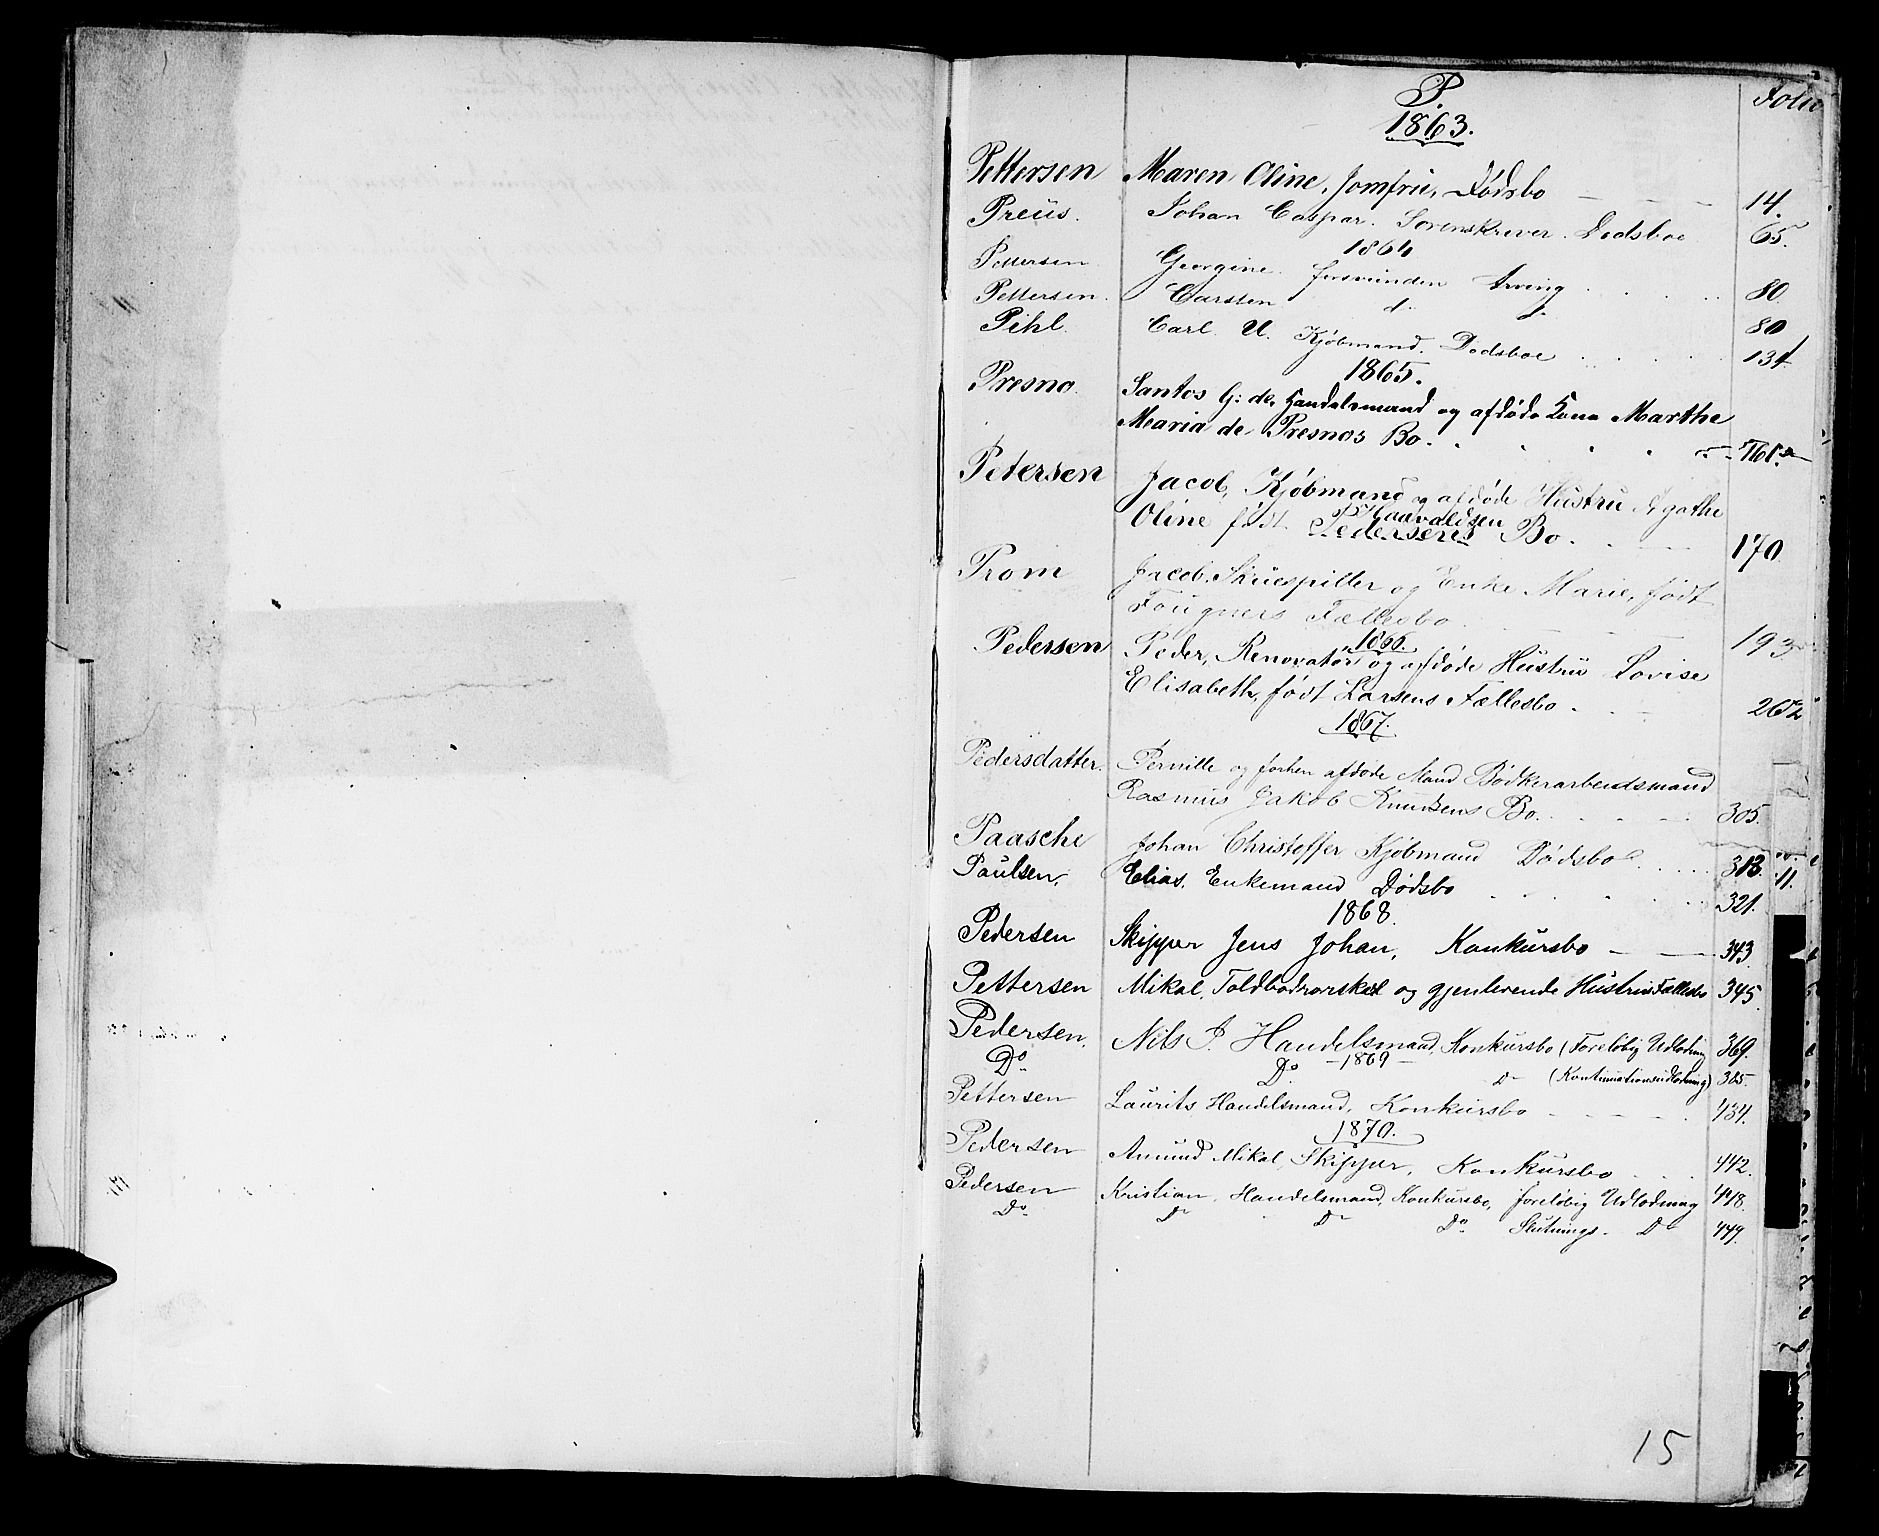 P.
Folio
1863.
Pettersen Maren Oline, Jomfru, Dødsbo 14.
Preüs. Johan Caspar. Sorenskriver. Dødsboe 65.
1864
Pettersen Georgine. forsvunden Arving 80.
Pettersen. Carsten d. d. 80
Pihl. Carl. U. Kjøbmand. Dødsboe 134
1865.
Presno. Santos G: de, Handelsmand og afdøde Kone Marthe
Maria de Presnos Bo. 161.
Petersen Jacob, Kjøbmand og afdøde Hustru Agathe
Oline født Haavaldsen Pedersens Bo. 170.
Prom Jacob, Skuespiller og Enke Marie, født
Fougners Fællesbo. 193
1866.
Pedersen Peder, Renovatør og afdøde Hustru Lovise
Elisabeth, født Larsens Fællesbo. 262
1867.
Pedersdatter. Pernille og forhen afdøde Mand Bødkerarbeidsmand
Rasmus Jakob Knudsens Bo. 305.
Paasche Johan Christoffer Kjøbmand Dødsbo 313. 11.
Paulsen, Elias, Enkemand Dødsbo 321.
1868.
Pedersen Skipper Jens Johan, Konkursbo 343
Pettersen Mikal, Toldbodrorskarl og gjenlevende Hustrus Fællesbo 345.
Pedersen. Nils P. Handelsmand, Konkursbo (Foreløbig Udlodning 369.
1869
Do Do D (Kontinuationsudlodning) 385.
Pettersen Laurits Handelsmand, Konkursbo 434.
1870.
Pedersen Amund Mikal, Skipper, Konkursbo 442.
Pedersen Kristian, Handelsmand, Konkursbo, foreløbig Udlodning 448.
Do. Do Do Do Slutnings- Do 449.
15